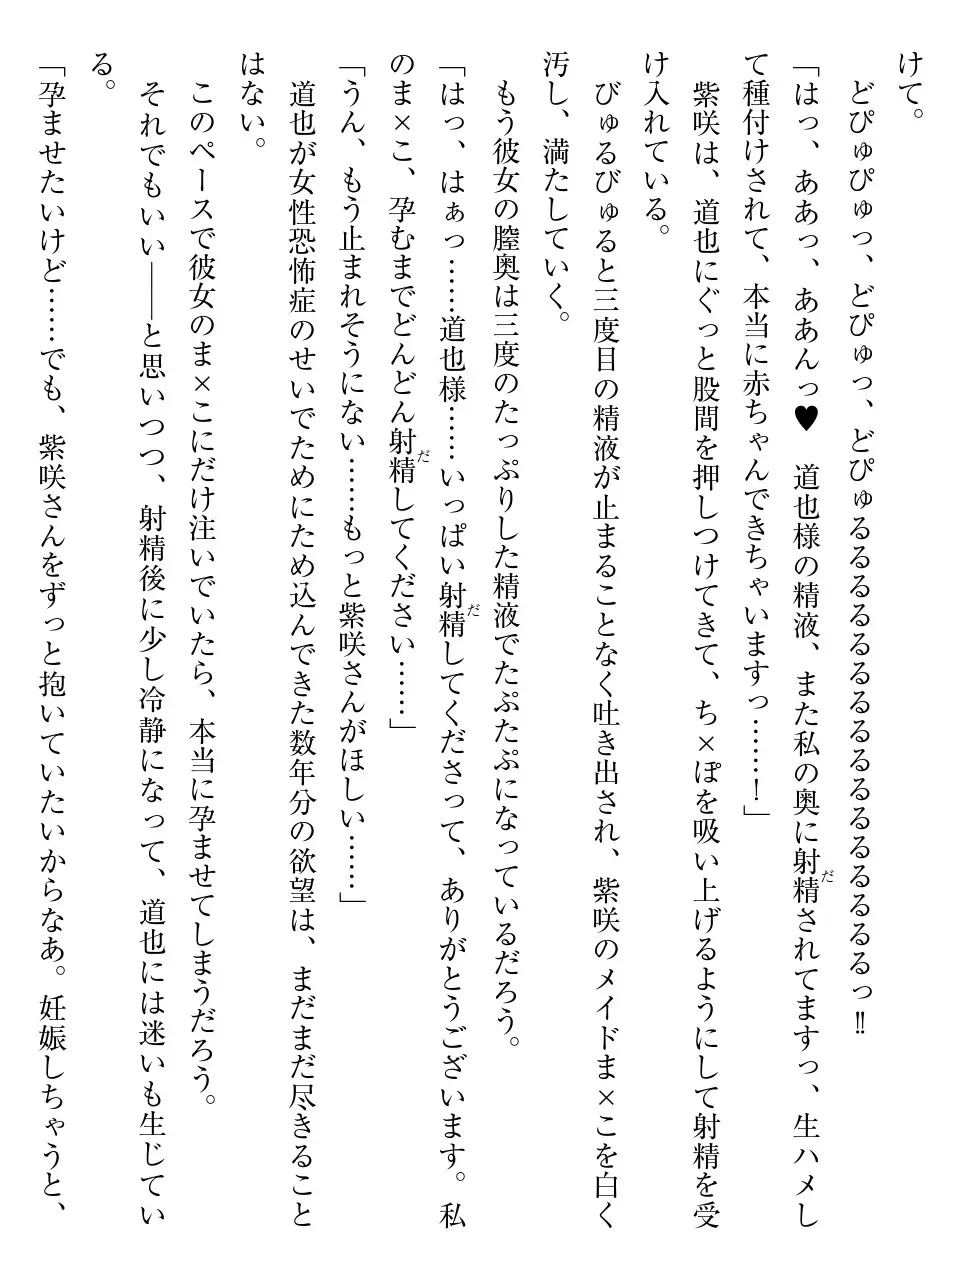 けて。
どぴゅぴゅっ、どぴゅっ、どぴゅるるるるるるるるるるるるるるっ‼
だ
「はっ、ああっ、ああんっ♥　道也様の精液、また私の奥に射精されてますっ、生ハメし
て種付けされて、本当に赤ちゃんできちゃいますっ……！」
紫咲は、道也にぐっと股間を押しつけてきて、ち×ぽを吸い上げるようにして射精を受
け入れている。
びゅるびゅると三度目の精液が止まることなく吐き出され、紫咲のメイドま×こを白く
汚し、満たしていく。
もう彼女の膣奥は三度のたっぷりした精液でたぷたぷになっているだろう。
だ
「はっ、はぁっ……道也様……いっぱい射精してくださって、ありがとうございます。私
だ
のま×こ、孕むまでどんどん射精してください……」
「うん、もう止まれそうにない……もっと紫咲さんがほしい……」
道也が女性恐怖症のせいでためにため込んできた数年分の欲望は、まだまだ尽きること
はない。
このペースで彼女のま×こにだけ注いでいたら、本当に孕ませてしまうだろう。
それでもいい――と思いつつ、射精後に少し冷静になって、道也には迷いも生じてい
る。
「孕ませたいけど……でも、紫咲さんをずっと抱いていたいからなあ。妊娠しちゃうと、